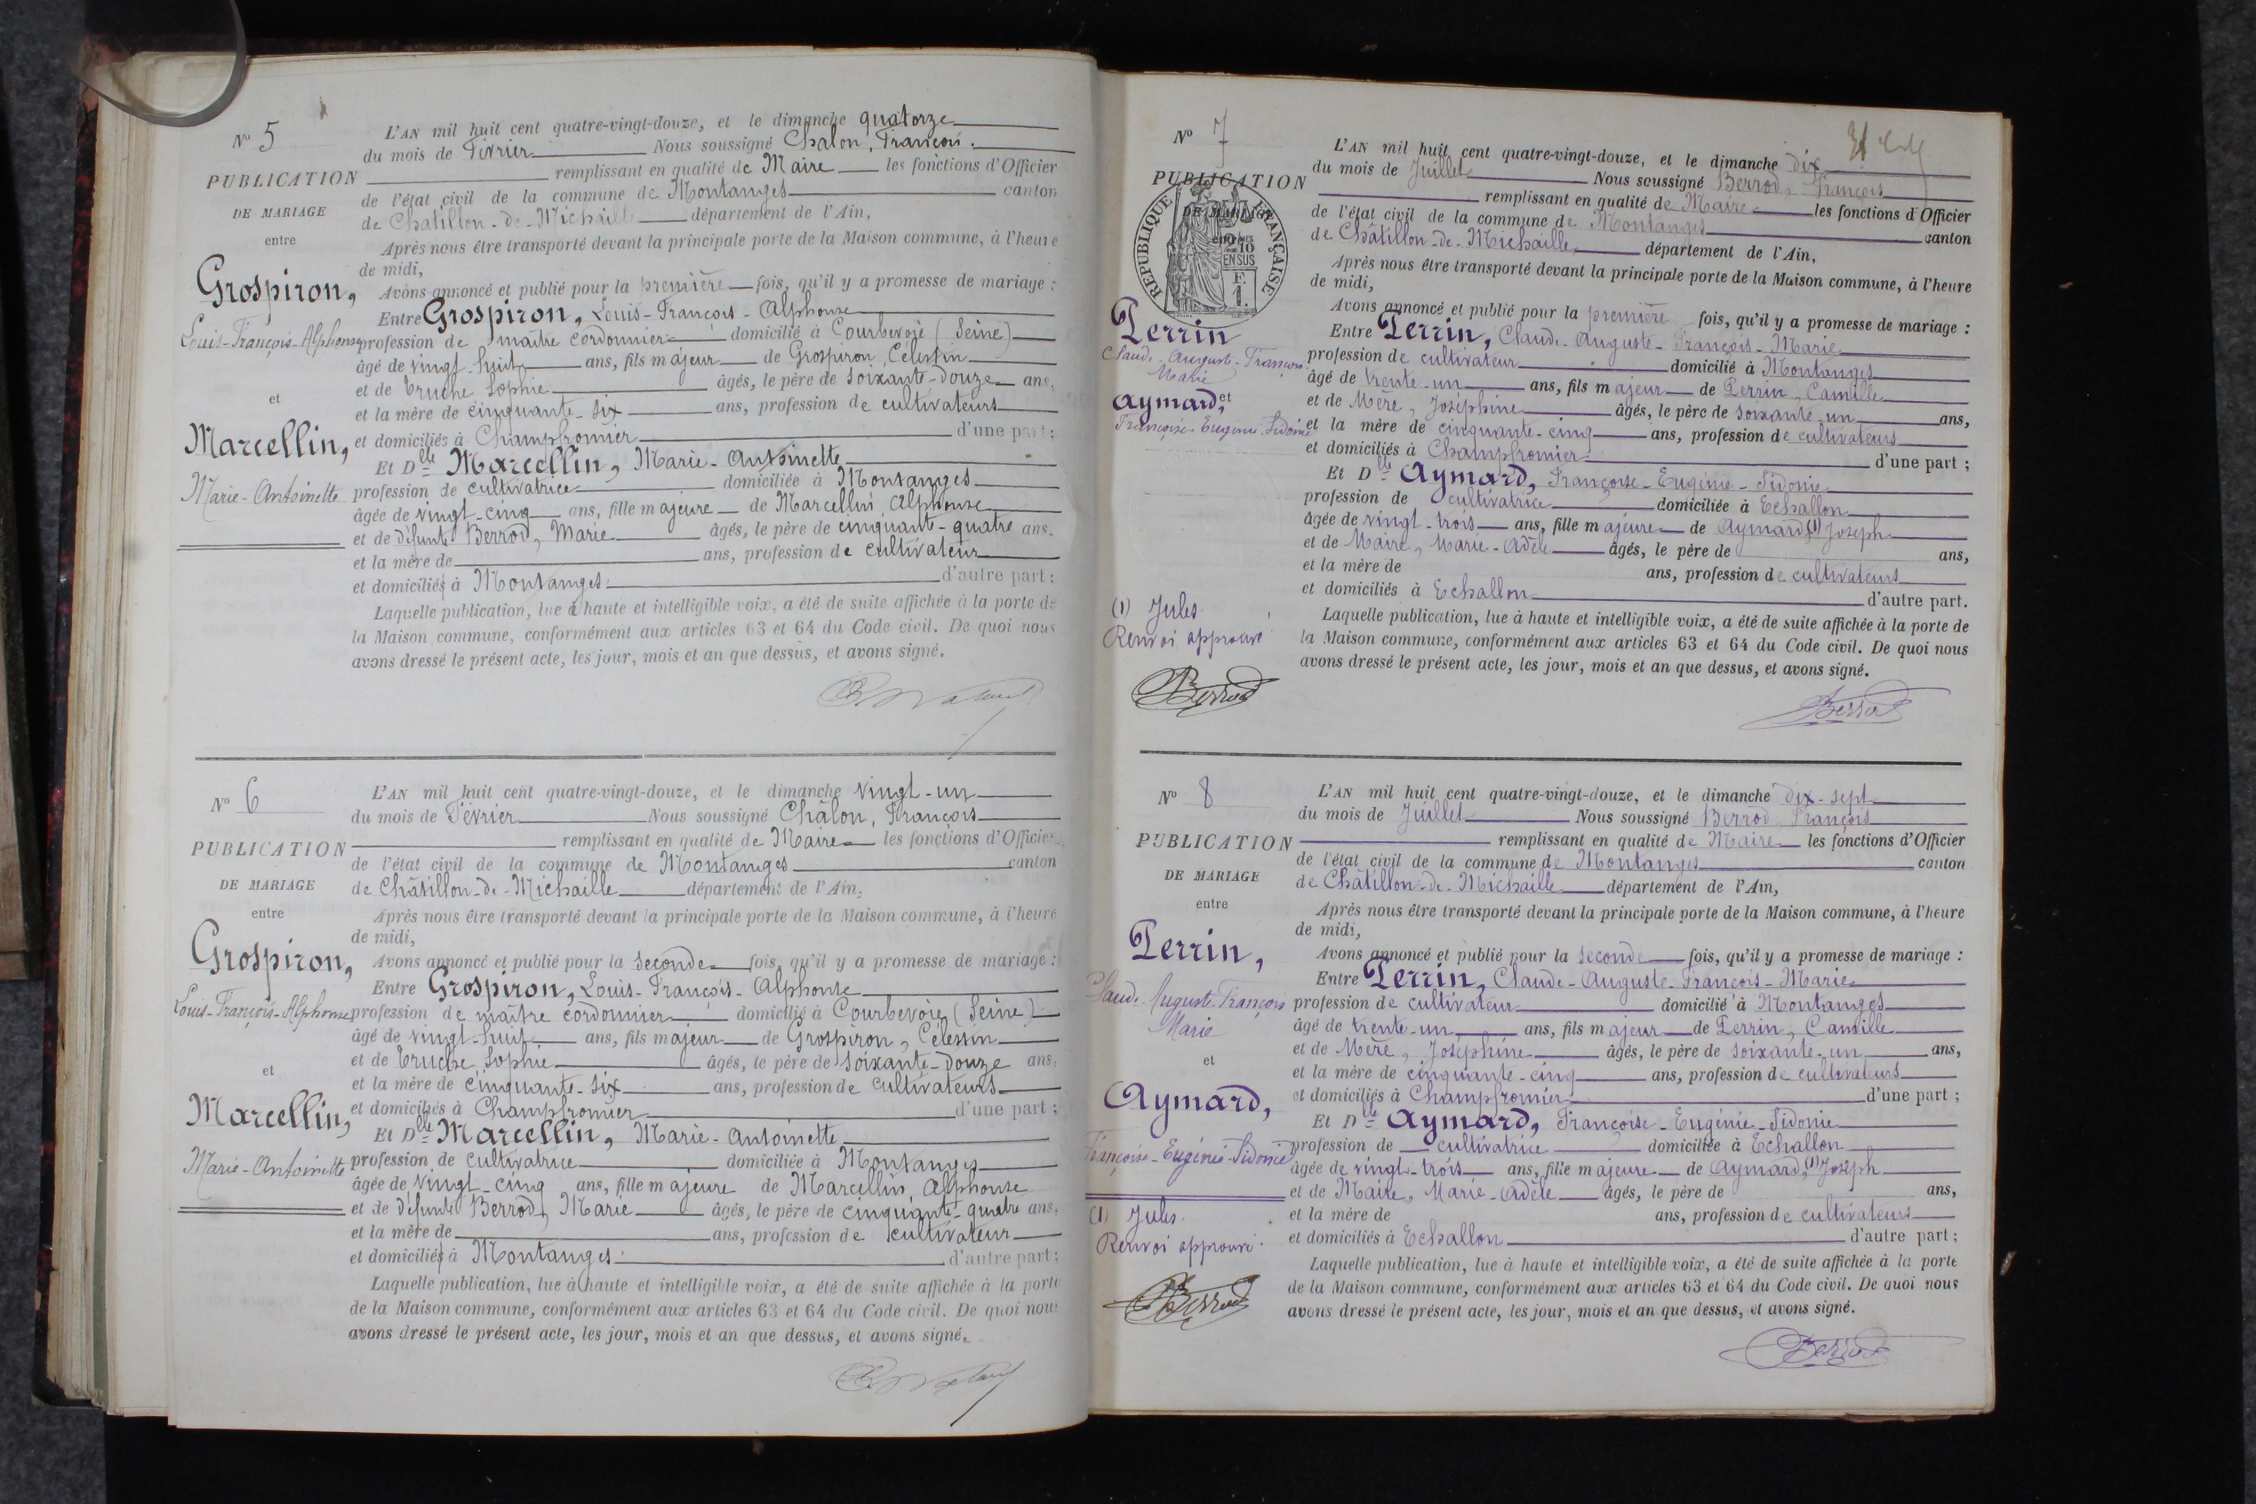 N° 5
PUBLICATION
DE MARIAGE
entre
Grospiron,
Louis-François-Alphonse
et
Marcellin,
Marie-Antoinette
L'AN mil huit cent quatre-vingt-douze, et le dimanche quatorze
du mois de Février Nous soussigné Chalon, François.
remplissant en qualité de Maire les fonctions d'Officier
de l'état civil de la commune de Montanges canton
de Chatillon-de-Michaille département de l'Ain,
Après nous être transporté devant la principale porte de la Maison commune, à l'heure
de midi,
Avons annoncé et publié pour la première fois, qu'il y a promesse de mariage :
Entre Grospiron, Louis-François-Alphonse
profession de maître cordonnier domicilié à Courbevoie (Seine)
âgé de vingt-huit ans, fils majeur de Grospiron, Célestin
et de Eruche Sophie âgés, le père de soixante-douze ans,
et la mère de cinquante-six ans, profession de cultivateurs
et domiciliés à Champfromier d'une part ;
Et Dlle Marcellin, Marie-Antoinette
profession de cultivatrice domiciliée à Montanges
âgée de vingt-cinq ans, fille majeure de Marcellin, Alphonse
et de défunte Berrod, Marie âgés, le père de cinquante-quatre ans,
et la mère de ans, profession de cultivateur
et domiciliés à Montanges d'autre part ;
Laquelle publication, lue à haute et intelligible voix, a été de suite affichée à la porte de
la Maison commune, conformément aux articles 63 et 64 du Code civil. De quoi nous
avons dressé le présent acte, les jour, mois et an que dessus, et avons signé.
N° 6
PUBLICATION
DE MARIAGE
entre
Grospiron,
Louis-François-Alphonse
et
Marcellin,
Marie-Antoinette
L'AN mil huit cent quatre-vingt-douze, et le dimanche vingt-un
du mois de Février Nous soussigné Châlon, François
remplissant en qualité de Maire les fonctions d'Officier
de l'état civil de la commune de Montanges canton
de Châtillon-de-Michaille département de l'Ain,
Après nous être transporté devant la principale porte de la Maison commune, à l'heure
de midi,
Avons annoncé et publié pour la seconde fois, qu'il y a promesse de mariage :
Entre Grospiron, Louis-François-Alphonse
profession de maître cordonnier domicilié à Courbevoie (Seine)
âgé de vingt-huit ans, fils majeur de Grospiron, Célestin
et de Eruche, Sophie âgés, le père de soixante-douze ans,
et la mère de cinquante-six ans, profession de cultivateurs
et domiciliés à Champfromier d'une part ;
Et Dlle Marcellin, Marie-Antoinette
profession de cultivatrice domiciliée à Montanges
âgée de vingt-cinq ans, fille majeure de Marcellin, Alphonse
et de défunte Berrod, Marie âgés, le père de cinquante-quatre ans,
et la mère de ans, profession de cultivateur
et domiciliés à Montanges d'autre part ;
Laquelle publication, lue à haute et intelligible voix, a été de suite affichée à la porte
de la Maison commune, conformément aux articles 63 et 64 du Code civil. De quoi nous
avons dressé le présent acte, les jour, mois et an que dessus, et avons signé.
N° 7
PUBLICATION
DE MARIAGE
RÉPUBLIQUE FRANÇAISE
10
EN SUS
F.
1.
Perrin
Claude-Auguste-François
Marie
et
Aymard,
Françoise-Eugénie-Sidonie
(1) Jules.
Renvoi approuvé
Berrod
L'AN mil huit cent quatre-vingt-douze, et le dimanche dix
du mois de Juillet Nous soussigné Berrod, François
remplissant en qualité de Maire les fonctions d'Officier
de l'état civil de la commune de Montanges canton
de Châtillon-de-Michaille département de l'Ain,
Après nous être transporté devant la principale porte de la Maison commune, à l'heure
de midi,
Avons annoncé et publié pour la première fois, qu'il y a promesse de mariage :
Entre Perrin, Claude-Auguste-François-Marie
profession de cultivateur domicilié à Montanges
âgé de trente-un ans, fils majeur de Perrin, Camille
et de Mère, Joséphine âgés, le père de soixante-un ans,
et la mère de cinquante-cinq ans, profession de cultivateurs
et domiciliés à Champfromier d'une part ;
Et Dlle Aymard, Françoise-Eugénie-Sidonie
profession de cultivatrice domiciliée à Echallon
âgée de vingt-trois ans, fille majeure de Aymard, (1) Joseph
et de Maire, Marie-Adèle âgés, le père de ans,
et la mère de ans, profession de cultivateurs
et domiciliés à Echallon d'autre part.
Laquelle publication, lue à haute et intelligible voix, a été de suite affichée à la porte de
la Maison commune, conformément aux articles 63 et 64 du Code civil. De quoi nous
avons dressé le présent acte, les jour, mois et an que dessus, et avons signé.
Berrod
N° 8
PUBLICATION
DE MARIAGE
entre
Perrin,
Claude-Auguste-François
Marie
et
Aymard,
Françoise-Eugénie-Sidonie
(1) Jules.
Renvoi approuvé.
Berrod
L'AN mil huit cent quatre-vingt-douze, et le dimanche dix-sept
du mois de Juillet Nous soussigné Berrod, François
remplissant en qualité de Maire les fonctions d'Officier
de l'état civil de la commune de Montanges canton
de Châtillon-de-Michaille département de l'Ain,
Après nous être transporté devant la principale porte de la Maison commune, à l'heure
de midi,
Avons annoncé et publié pour la seconde fois, qu'il y a promesse de mariage :
Entre Perrin, Claude-Auguste-François-Marie
profession de cultivateur domicilié à Montanges
âgé de trente-un ans, fils majeur de Perrin, Camille
et de Mère, Joséphine âgés, le père de soixante-un ans,
et la mère de cinquante-cinq ans, profession de cultivateurs
et domiciliés à Champfromier d'une part ;
Et Dlle Aymard, Françoise-Eugénie-Sidonie
profession de cultivatrice domiciliée à Echallon
âgée de vingt-trois ans, fille majeure de Aymard, (1) Joseph
et de Maire, Marie-Adèle âgés, le père de ans,
et la mère de ans, profession de cultivateurs
et domiciliés à Echallon d'autre part ;
Laquelle publication, lue à haute et intelligible voix, a été de suite affichée à la porte
de la Maison commune, conformément aux articles 63 et 64 du Code civil. De quoi nous
avons dressé le présent acte, les jour, mois et an que dessus, et avons signé.
Berrod